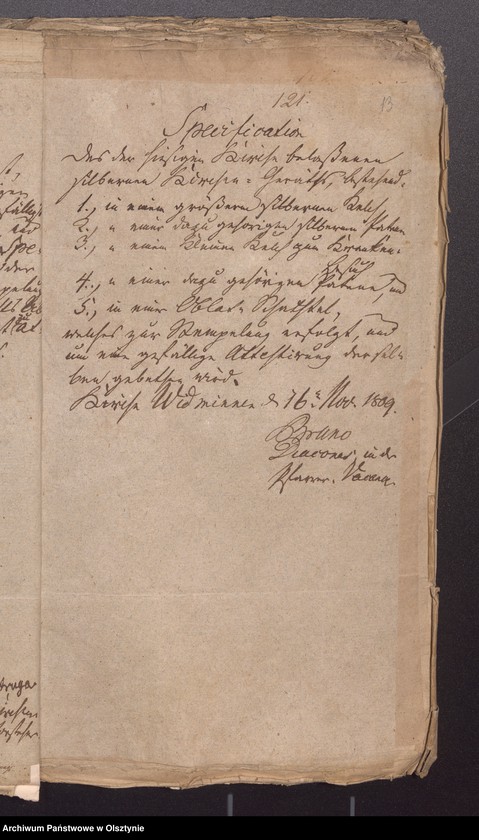 121.
13
Specification
des der hiesigen Kirche belaßenen
silbernen Kirchen-Geräths, bestehend.
1., in einem größeren silbernen Kelch
2., " einer dazu gehörigen silbernen Paten
3., " einem kleinen Kelch zum Kranken-
besuch
4., " einer dazu gehörigen Patene, und
5., in einer Oblat-Schachtel,
welches zur Stempelung erfolgt, und
um eine gefällige Attestirung dersel-
ben gebethen wird.
Kirche Widminnen d 16t Nov. 1809.
Bruno
Diaconus, in der
Pfarr. Vacan
Archiwum Państwowe w Olsztynie